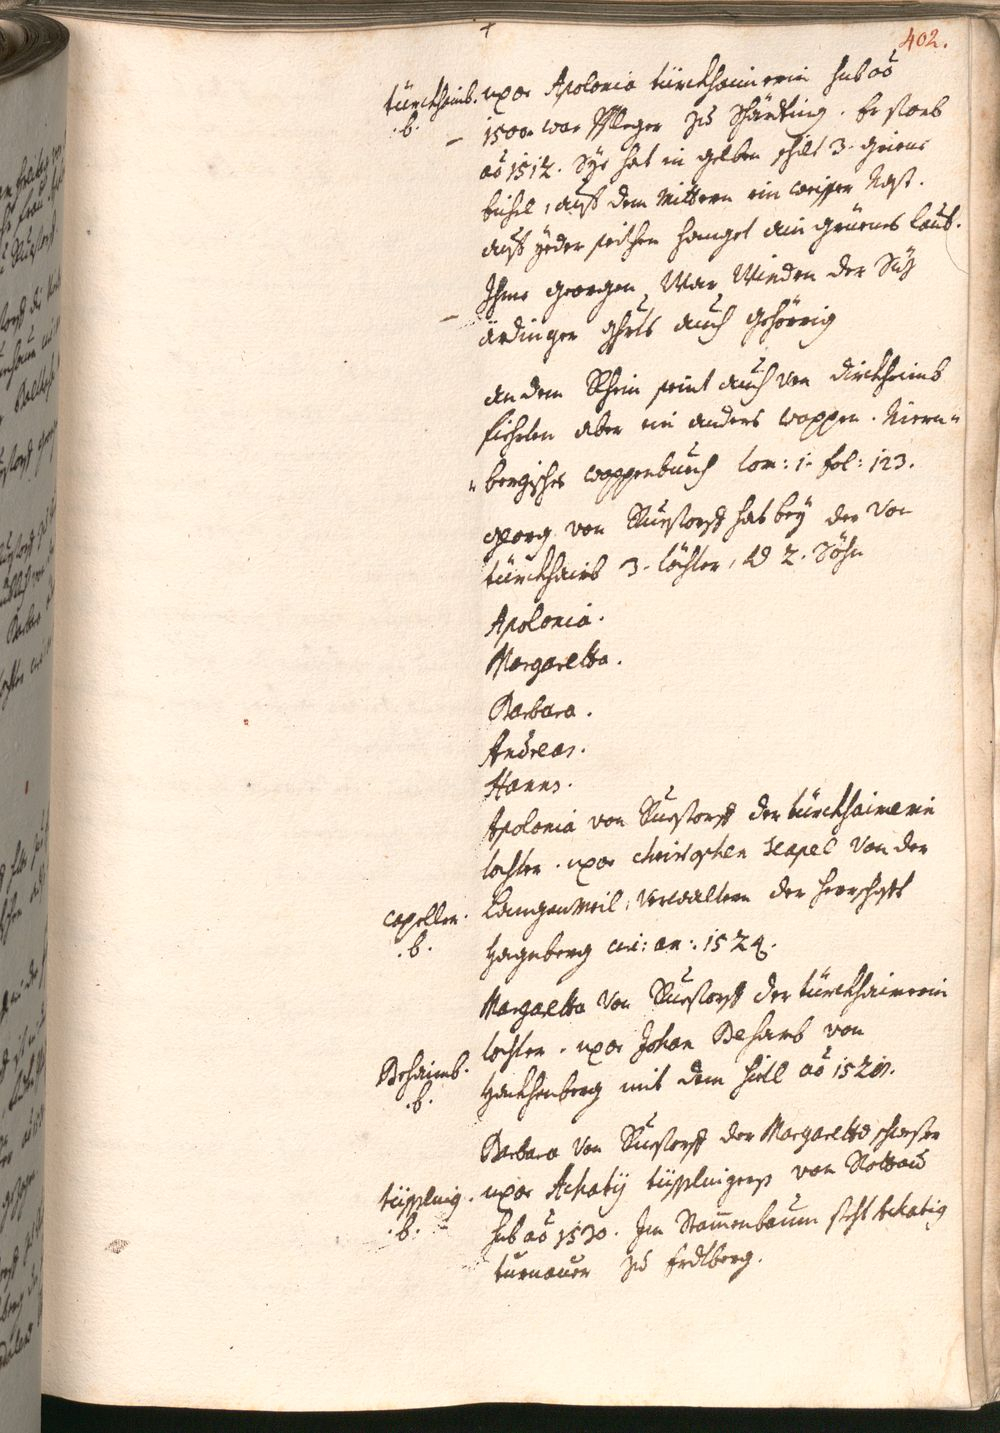 402.
türckhaimb. uxor Apolonia türckhaimerin hub ao
.b. 1500. war Pfleger zu Schärding. Er starb
ao 1512. Sye hat in gelben schilt 3. griene
bichel, auf dem Mittern ein weisser Nast.
auf yeder seithen hanget ain grienes laub.
Ihme georgen War Winden der
ärdinger ghrts auch gehörrig
an dem Rhein seint auch von dirckhaimb
fiehrten aber ein anders wappen. Niern=
=bergisches wappenbuech tom: 1. fol: 123.
georg von Ruestorff hat bey der von
türckhaimb 3. töchter, und 2. Söhn
Apolonia.
Margaretta.
Barbara.
Andreas.
Hanns.
Apolonia von Ruestorff der türckhaimerin
tochter. uxor christophen Capel von der
capeller. Langenweil, Verwaltern der herrschafft
.b. Hagnberg an: 1524.
Margaretta von Ruestorff der türckhaimerin
tochter. uxor Johan Behamb von
Behaimb. Hackhenberg mit dem hietl ao 1528.
.b.
Barbara von Ruestorff der Margaretta schwester
tüpplnig. uxor Achatÿ tüpplingers von
.b. hub ao 1530. Im Stammenbaum steht Achatig
turnauer zu Erdlberg.